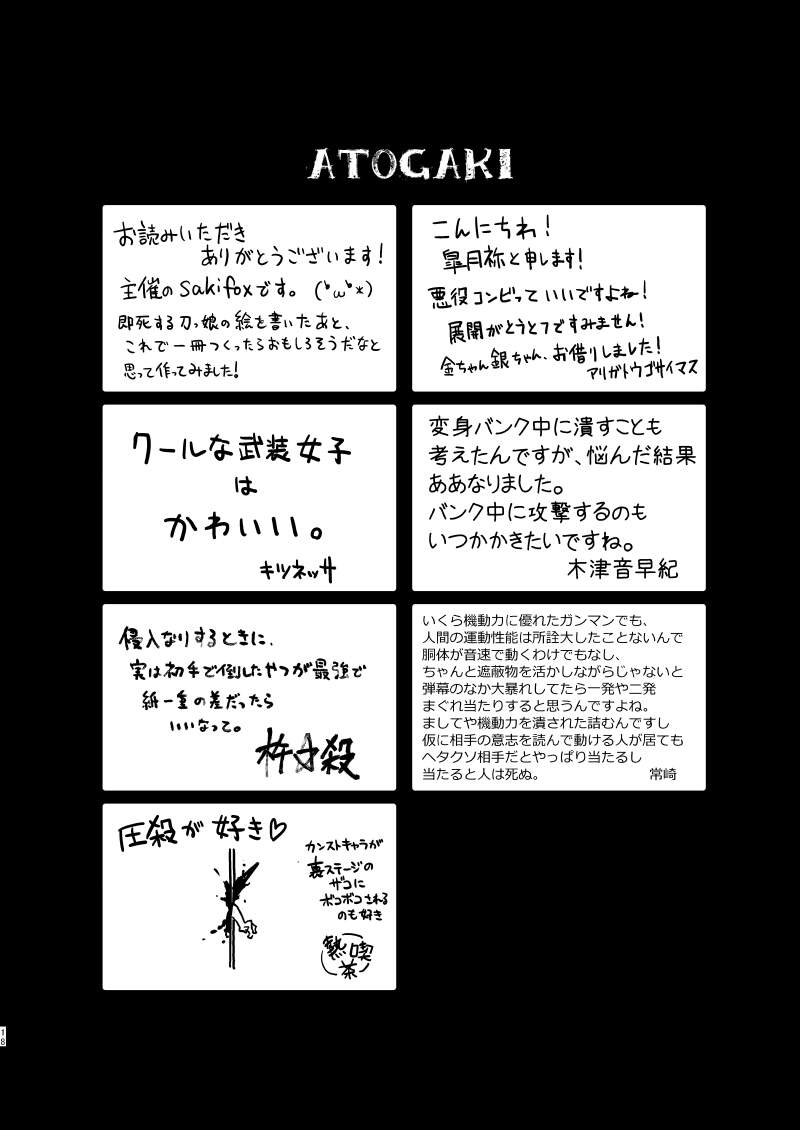 ATOGAKI
お読みいただき
ありがとうございます!
主催のsakifoxです。 (•ω•*)
即死する刀っ娘の絵を書いたあと、
これで一冊つくったらおもしろそうだなと
思って作ってみました!
こんにちわ!
皐月祢と申します!
悪役コンビっていいですよね!
展開がとうとつですみません!
金ちゃん銀ちゃん、お借りしました!
アリガトウゴサイマス
クールな武装女子
は
かわいい。
キツネッサ
変身バンク中に潰すことも
考えたんですが、悩んだ結果
ああなりました。
バンク中に攻撃するのも
いつかかきたいですね。
木津音早紀
侵入なりするときに、
実は初手で倒したやつが最強で
紙一重の差だったら
いいなって。
杵☆殺
いくら機動力に優れたガンマンでも、
人間の運動性能は所詮大したことないんで
胴体が音速で動くわけでもなし、
ちゃんと遮蔽物を活かしながらじゃないと
弾幕のなか大暴れしてたら一発や二発
まぐれ当たりすると思うんですよね。
ましてや機動力を潰された詰むんですし
仮に相手の意志を読んで動ける人が居ても
ヘタクソ相手だとやっぱり当たるし
当たると人は死ぬ。 常崎
圧殺が好き♡
カンストキャラが
裏ステージの
ザコに
ボコボコされる
のも好き
熱喫
茶
18